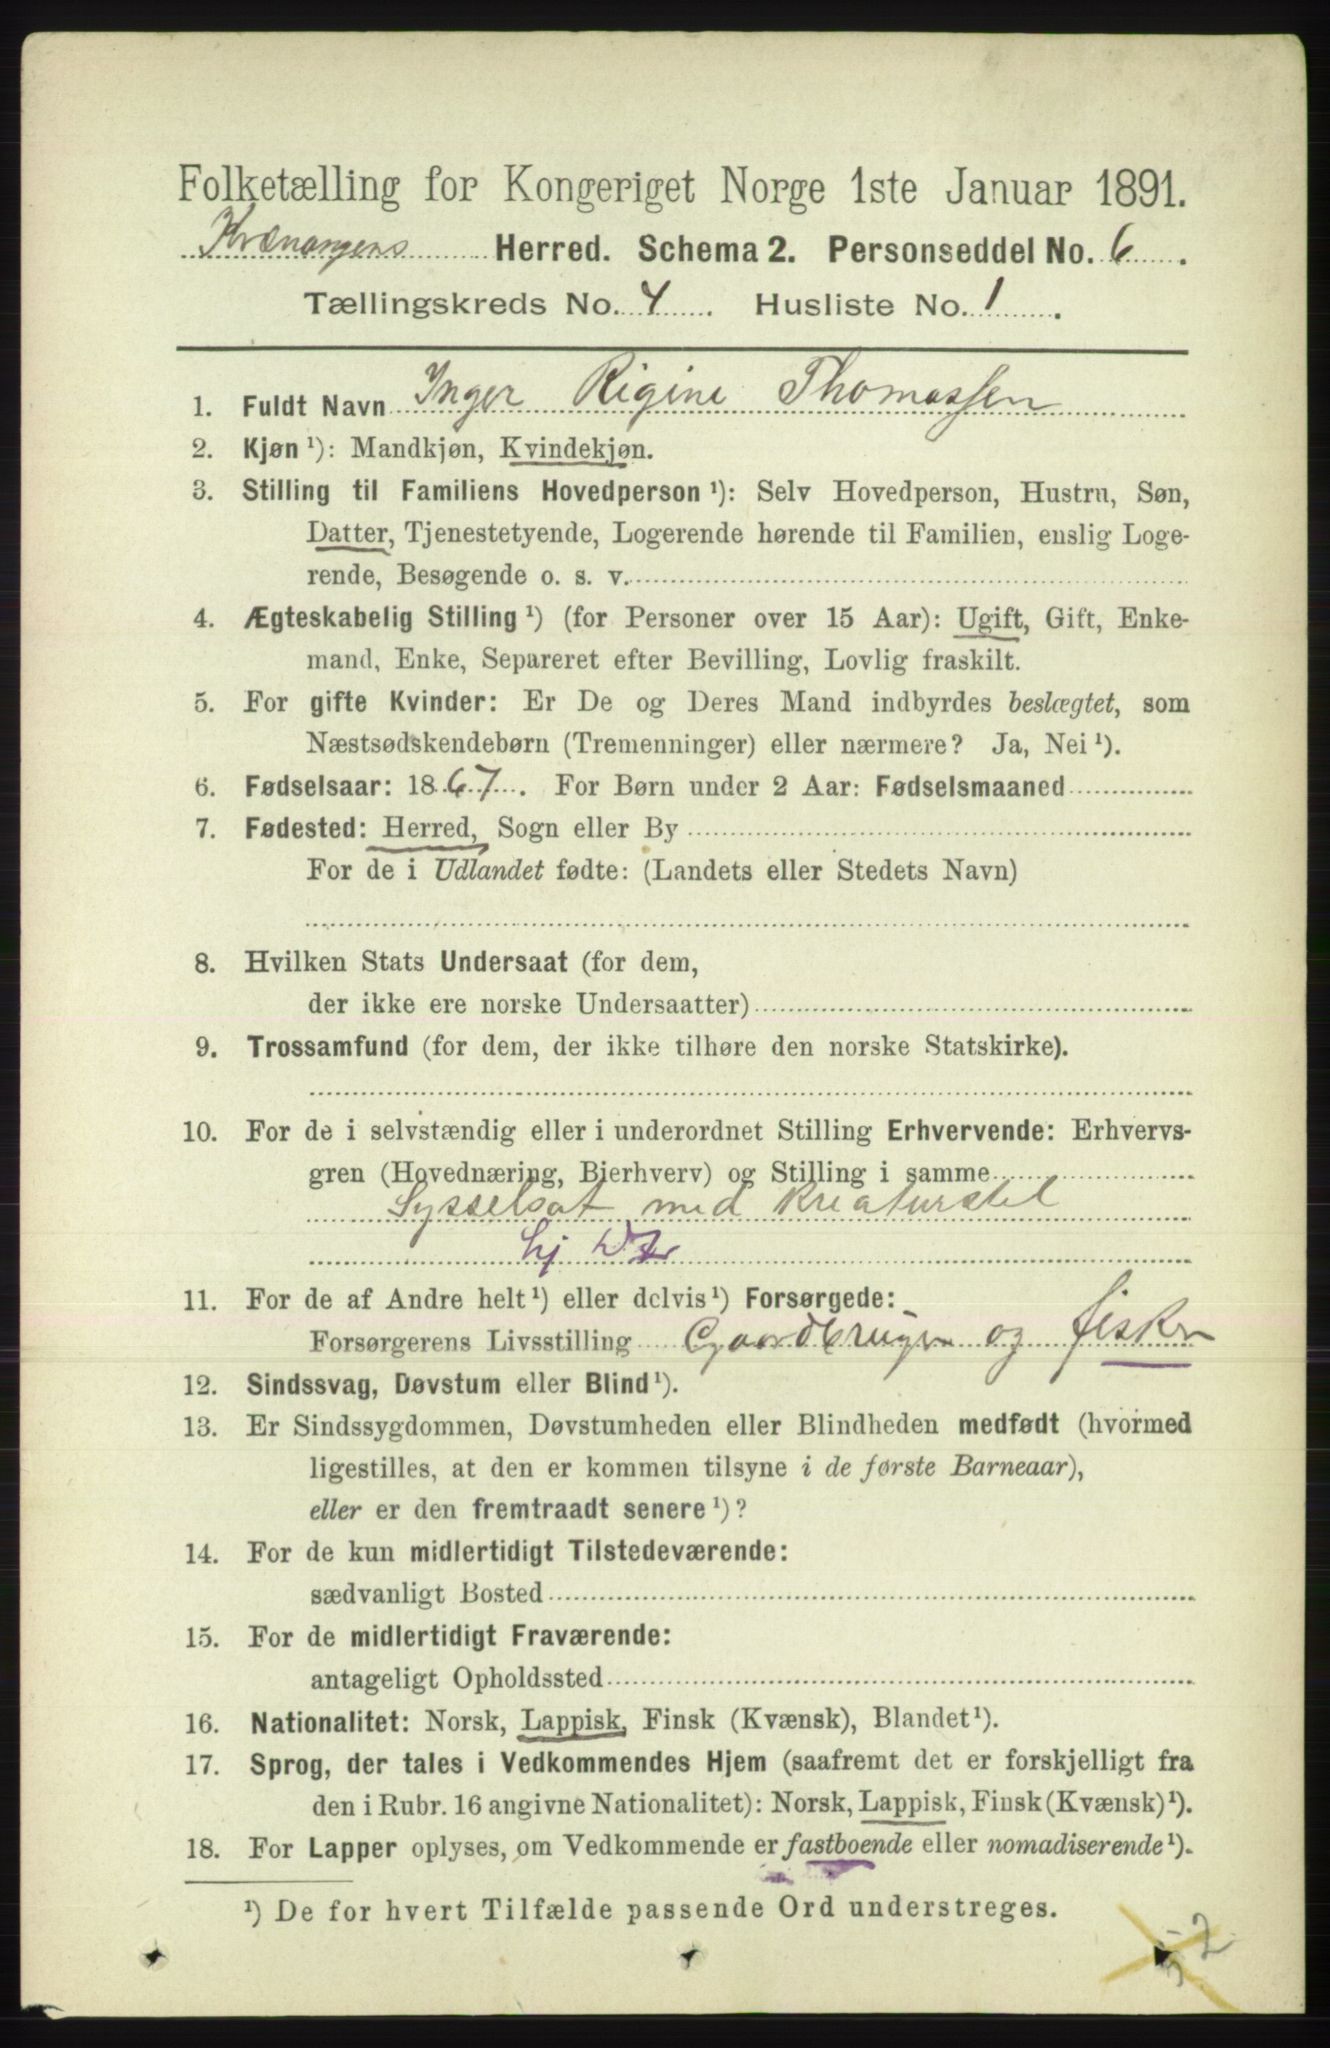 Folketælling for Kongeriget Norge 1ste Januar 1891.
Kvænangens Herred. Schema 2. Personseddel No. 6.
Tællingskreds No. 4. Husliste No. 1.
1. Fuldt Navn Inger Rigine Thomassen
2. Kjøn ¹): Mandkjøn, Kvindekjøn.
3. Stilling til Familiens Hovedperson ¹): Selv Hovedperson, Hustru, Søn,
Datter, Tjenestetyende, Logerende hørende til Familien, enslig Loge-
rende, Besøgende o. s. v.
4. Ægteskabelig Stilling ¹) (for Personer over 15 Aar): Ugift, Gift, Enke-
mand, Enke, Separeret efter Bevilling, Lovlig fraskilt.
5. For gifte Kvinder: Er De og Deres Mand indbyrdes beslægtet, som
Næstsødskendebørn (Tremenninger) eller nærmere? Ja, Nei ¹).
6. Fødselsaar: 1867. For Børn under 2 Aar: Fødselsmaaned
7. Fødested: Herred, Sogn eller By
For de i Udlandet fødte: (Landets eller Stedets Navn)
8. Hvilken Stats Undersaat (for dem,
der ikke ere norske Undersaatter)
9. Trossamfund (for dem, der ikke tilhøre den norske Statskirke).
10. For de i selvstændig eller i underordnet Stilling Erhvervende: Erhvervs-
gren (Hovednæring, Bierhverv) og Stilling i samme
Sysselsat med Kreaturstel
hj
11. For de af Andre helt ¹) eller delvis ¹) Forsørgede:
Forsørgerens Livsstilling Gaardbruger og fisker
12. Sindssvag, Døvstum eller Blind ¹).
13. Er Sindssygdommen, Døvstumheden eller Blindheden medfødt (hvormed
ligestilles, at den er kommen tilsyne i de første Barneaar),
eller er den fremtraadt senere ¹)?
14. For de kun midlertidigt Tilstedeværende:
sædvanligt Bosted
15. For de midlertidigt Fraværende:
antageligt Opholdssted
16. Nationalitet: Norsk, Lappisk, Finsk (Kvænsk), Blandet ¹).
17. Sprog, der tales i Vedkommendes Hjem (saafremt det er forskjelligt fra
den i Rubr. 16 angivne Nationalitet): Norsk, Lappisk, Finsk (Kvænsk) ¹).
18. For Lapper oplyses, om Vedkommende er fastboende eller nomadiserende ¹).
¹) De for hvert Tilfælde passende Ord understreges.